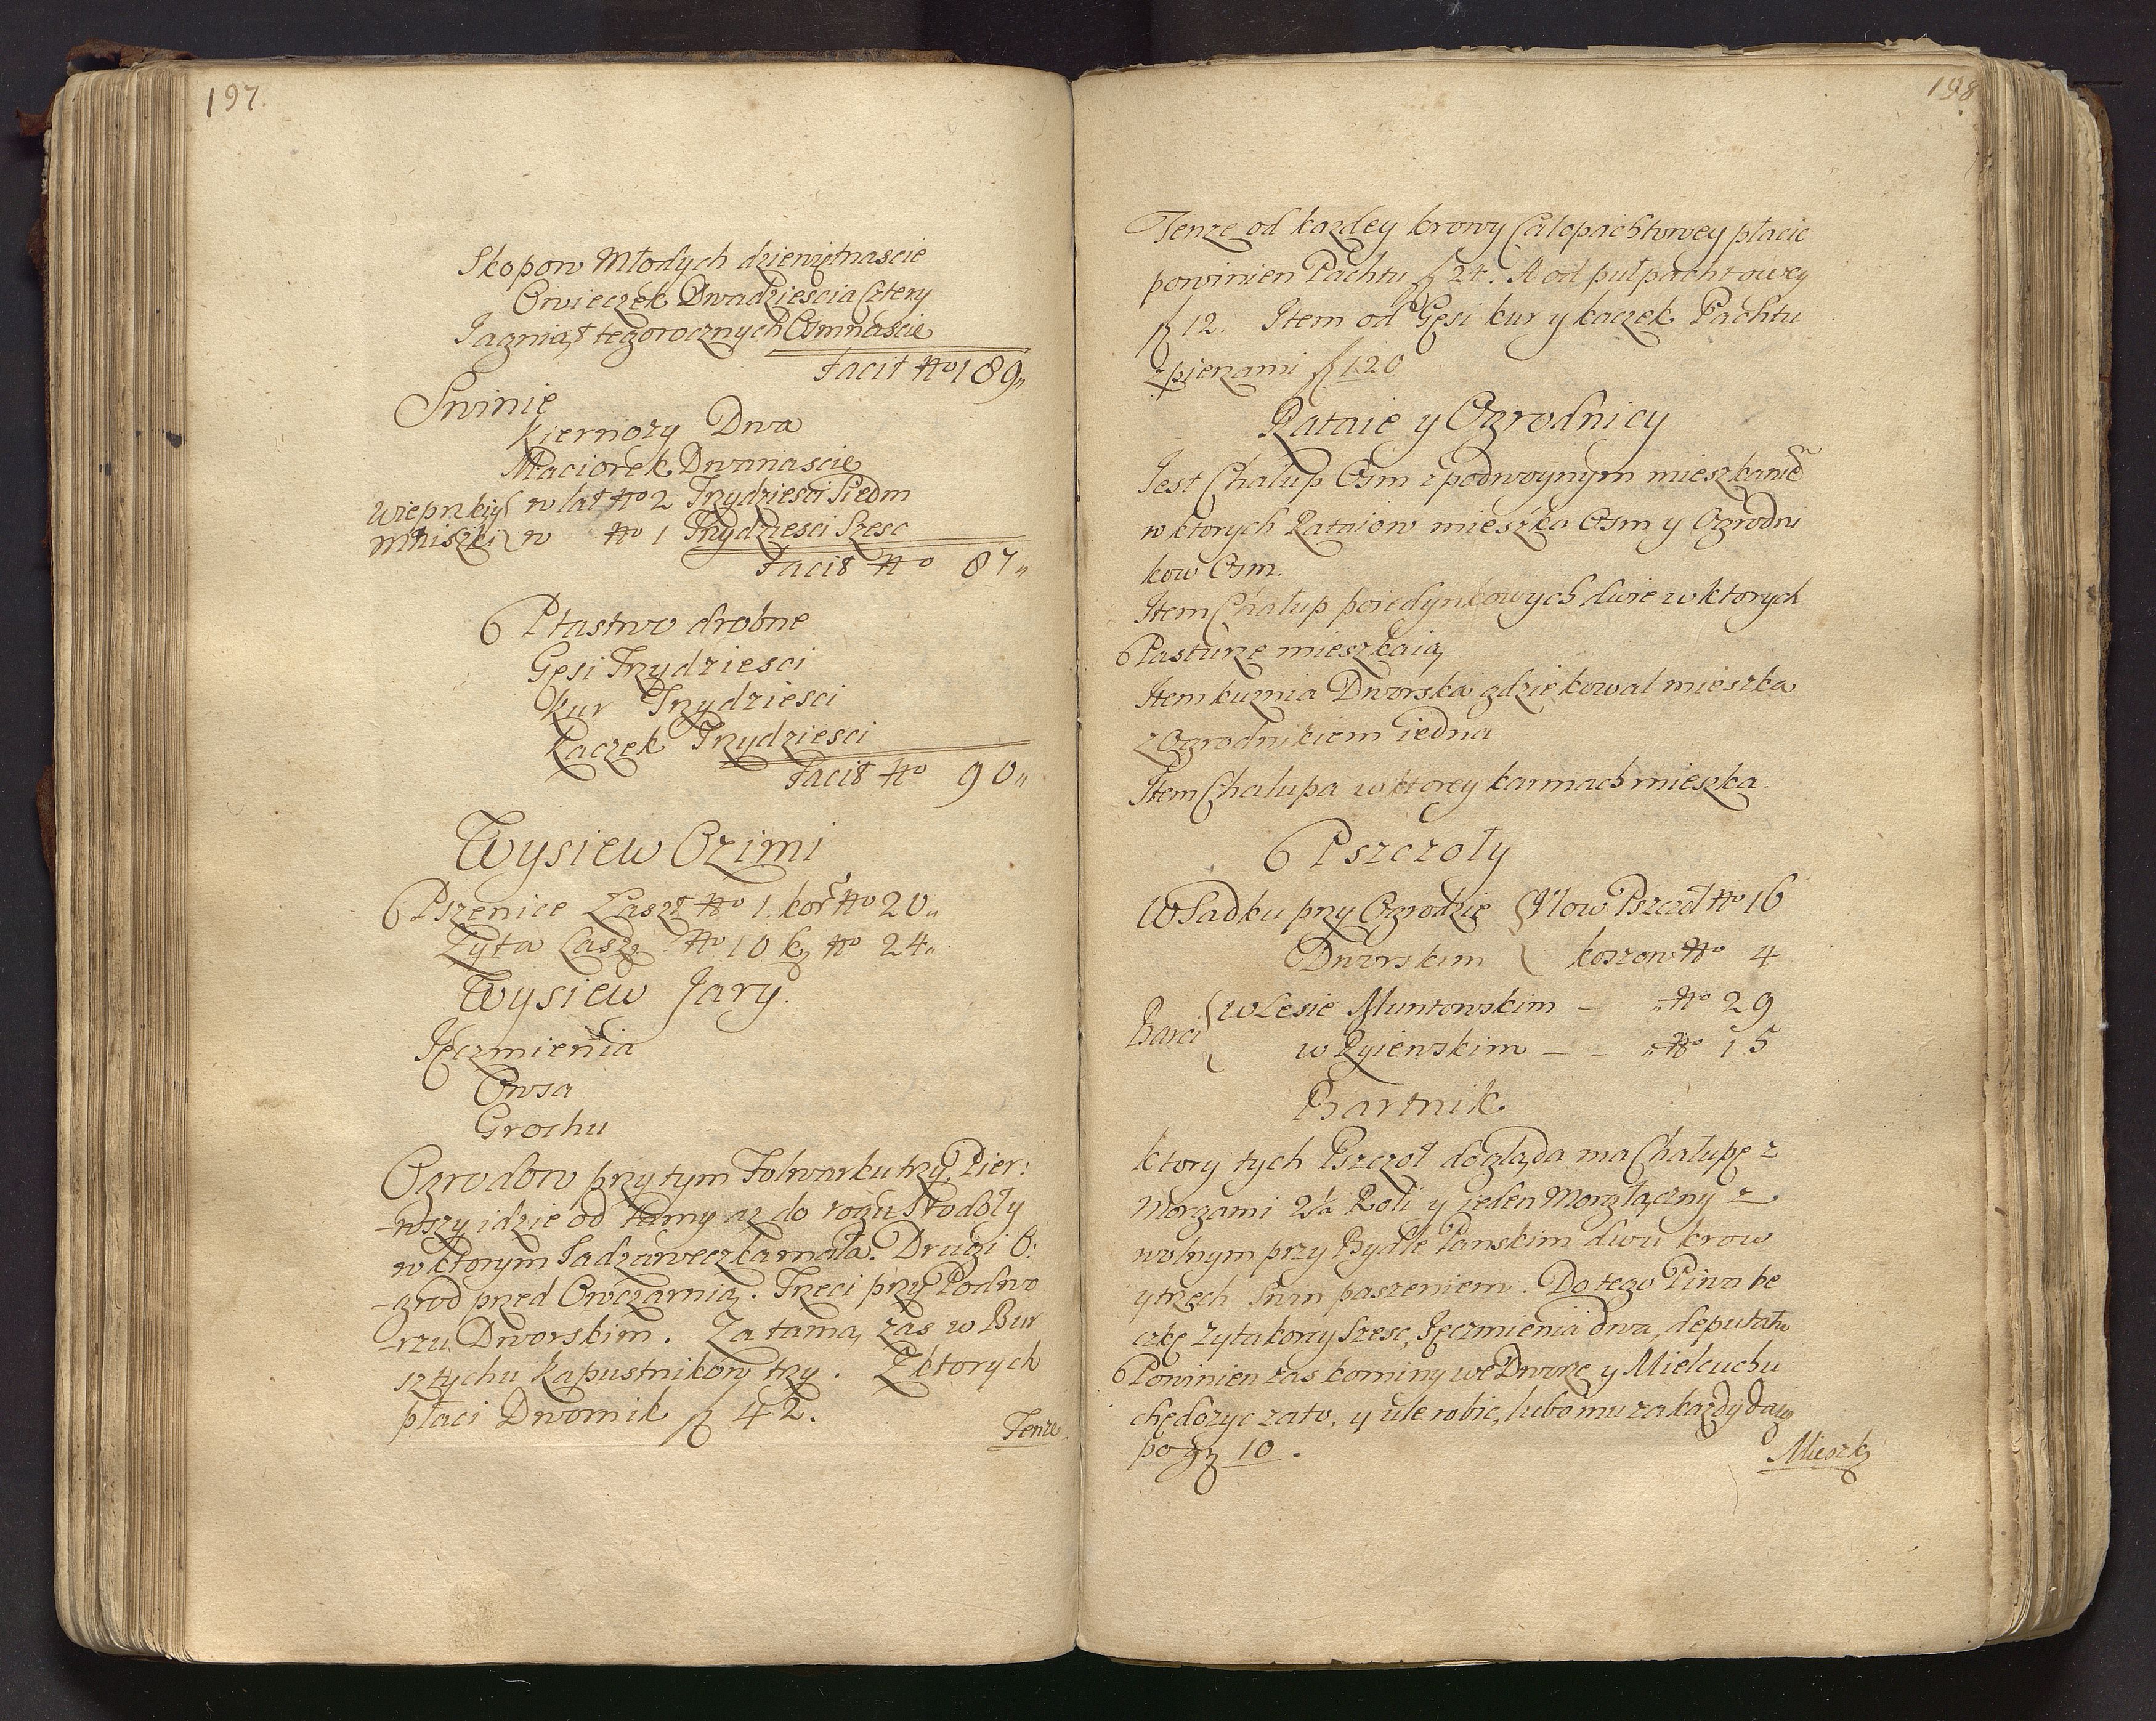 197.
Skopow Młodych dziewiętnascie
Owieczek Dwadziescia Cztery
Jagniąt tegorocznych Osmnascie
Facit No 189
Swinie
Kiernozy Dwa
Maciorek Dwanascie
Wieprzki y w lat No 2 Trzydziesci Siedm
mniszki w No 1 Trzydziesci Szesc
Facit No 87
Ptastwo drobne
Gęsi Trzydziesci
Kur Trzydziesci
Kaczek Trzydziesci
Facit No 90
Wysiew Ozimi
Pszenice Laszt No 1. kor No 20
Zyta Lasz No 10 k No 24
Wysiew Jary.
Jęczmienia
Owsa
Grochu
Ogrodow przy tym Folwarku trzy, Pier:
-wszy idzie od tamy az do rogu Stodoły
w ktorym Sadzaweczka mała. Drugi O:
-grod przed Owczarnią. Trzeci przy Podwo
-rzu Dworskim. Za tamą zas w Bur
sztychu kapustnikow trzy. Z ktorych
płaci Dwornik f 42.
Tenze
198.
Tenze od kazdey krowy Całopachtowey płacic
powinien Pachtu f 24. A od pułpachtowey
f 12. Item od Gęsi kur y kaczek Pachtu
z pierzami f 120
Rataie y Ogrodnicy
Jest Chałup Osm z podwoynym mieszkanie
w ktorych Rataiow mieszka Osm y Ogrodni
kow Osm.
Item Chałup poiedynkowych dwie w ktorych
Pasturze mieszkaią
Item kuznia Dworska gdzie kowal mieszka
z Ogrodnikiem iedna
Item Chałupa w ktorey karmach mieszka.
Pszczoły
W Sadku przy Ogrodzie Ulow Pszczoł No 16
Dworskim koszow No 4
Barci w Lesie Muntowskim - No 29
w Ryienskim - - No 15
Bartnik
ktory tych Pszczoł dogląda ma Chałupę z
Morgami 2½ Roli y jeden Morg łączny z
wolnym przy Bydle Panskim dwu krow
y trzech Swin paszeniem. Do tego Piwa be
czkę zyta korcy Szesc, Jęczmienia dwa, deputatu
Powinien zas kominy we Dworze y Mielcuchu
chędozyc zato, y ule robic, lubo mu za kazdy daią
po gr 10.
Mieszk